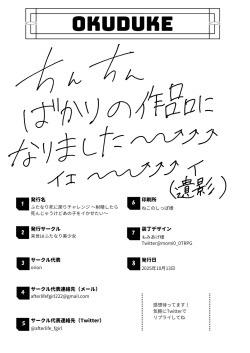 OKUDUKE
ちんちん
ばかりの作品に
なりました〜〜↗↗↗
イエ〜〜↗↗↗イ
(遺影)
1 発行名
ふたなり死に戻りチャレンジ 〜射精したら
死んじゃうけどあの子をイかせたい〜
2 発行サークル
来世はふたなり美少女
3 サークル代表
onon
4 サークル代表連絡先（メール）
afterlifefgirl222@gmail.com
5 サークル代表連絡先（Twitter）
@afterlife_fgirl
6 印刷所
ねこのしっぽ様
7 装丁デザイン
もみあげ様
Twitter@momi0_0TRPG
8 発行日
2025年10月13日
感想待ってます！
気軽にTwitterで
リプライしてね